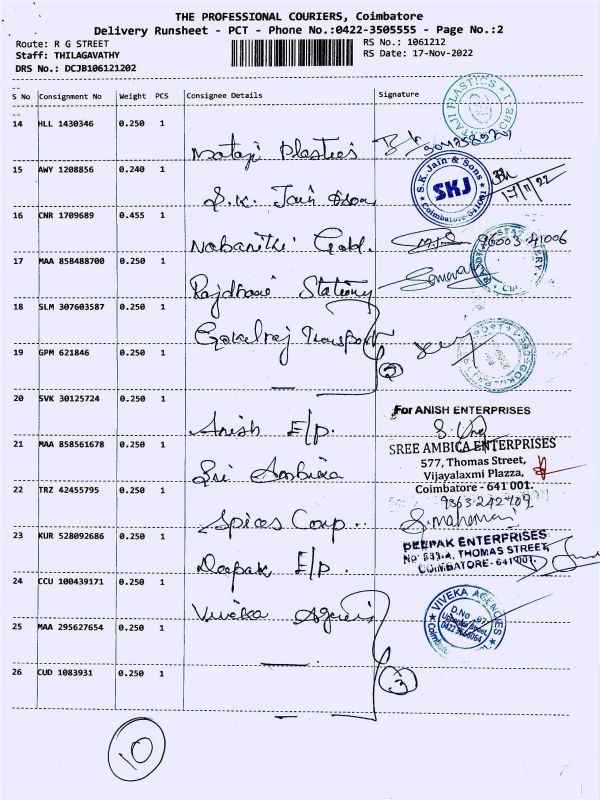 THE PROFESSIONAL COURIERS, Coimbatore
Delivery Runsheet - PCT - Phone No.:0422-3505555 - Page No.:2
Route: R G STREET
RS No.: 1061212
Staff: THILAGAVATHY
RS Date: 17-Nov-2022
DRS No.: DCJB106121202
S No Consignment No Weight PCS Consignee Details Signature
14 HLL 1430346 0.250 1
Mataji Plastics
15 AWY 1208856 0.240 1
S.K. Jain &Son
S.K. Jain & Sons
SKJ
Coimbatore
17/11/22
16 CNR 1709689 0.455 1
Nabanithi Gold.
96003 41006
17 MAA 858488700 0.250 1
Rajdhani Stationy
18 SLM 307603587 0.250 1
Gokulraj Transport
19 GPM 621846 0.250 1
2
20 SVK 30125724 0.250 1
Anish E/p.
For ANISH ENTERPRISES
21 MAA 858561678 0.250 1
Sri Ambika
SREE AMBICA ENTERPRISES
577, Thomas Street,
Vijayalaxmi Plazza,
Coimbatore - 641 001.
22 TRZ 42455795 0.250 1
Spices Corp..
9363 242409
23 KUR 528092686 0.250 1
Deepak E/p.
DEEPAK ENTERPRISES
THOMAS STREET,
COIMBATORE - 641001.
24 CCU 100439171 0.250 1
Viveka Agencis
VIVEKA AGENCIES
25 MAA 295627654 0.250 1
26 CUD 1083931 0.250 1
3
10